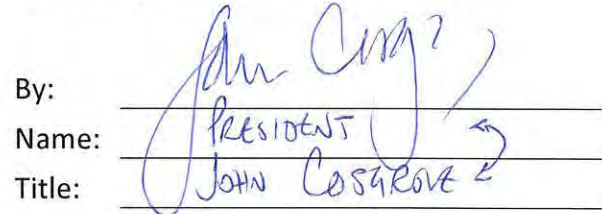 By: John Cosg
Name: PRESIDENT
Title: JOHN COSGROVE